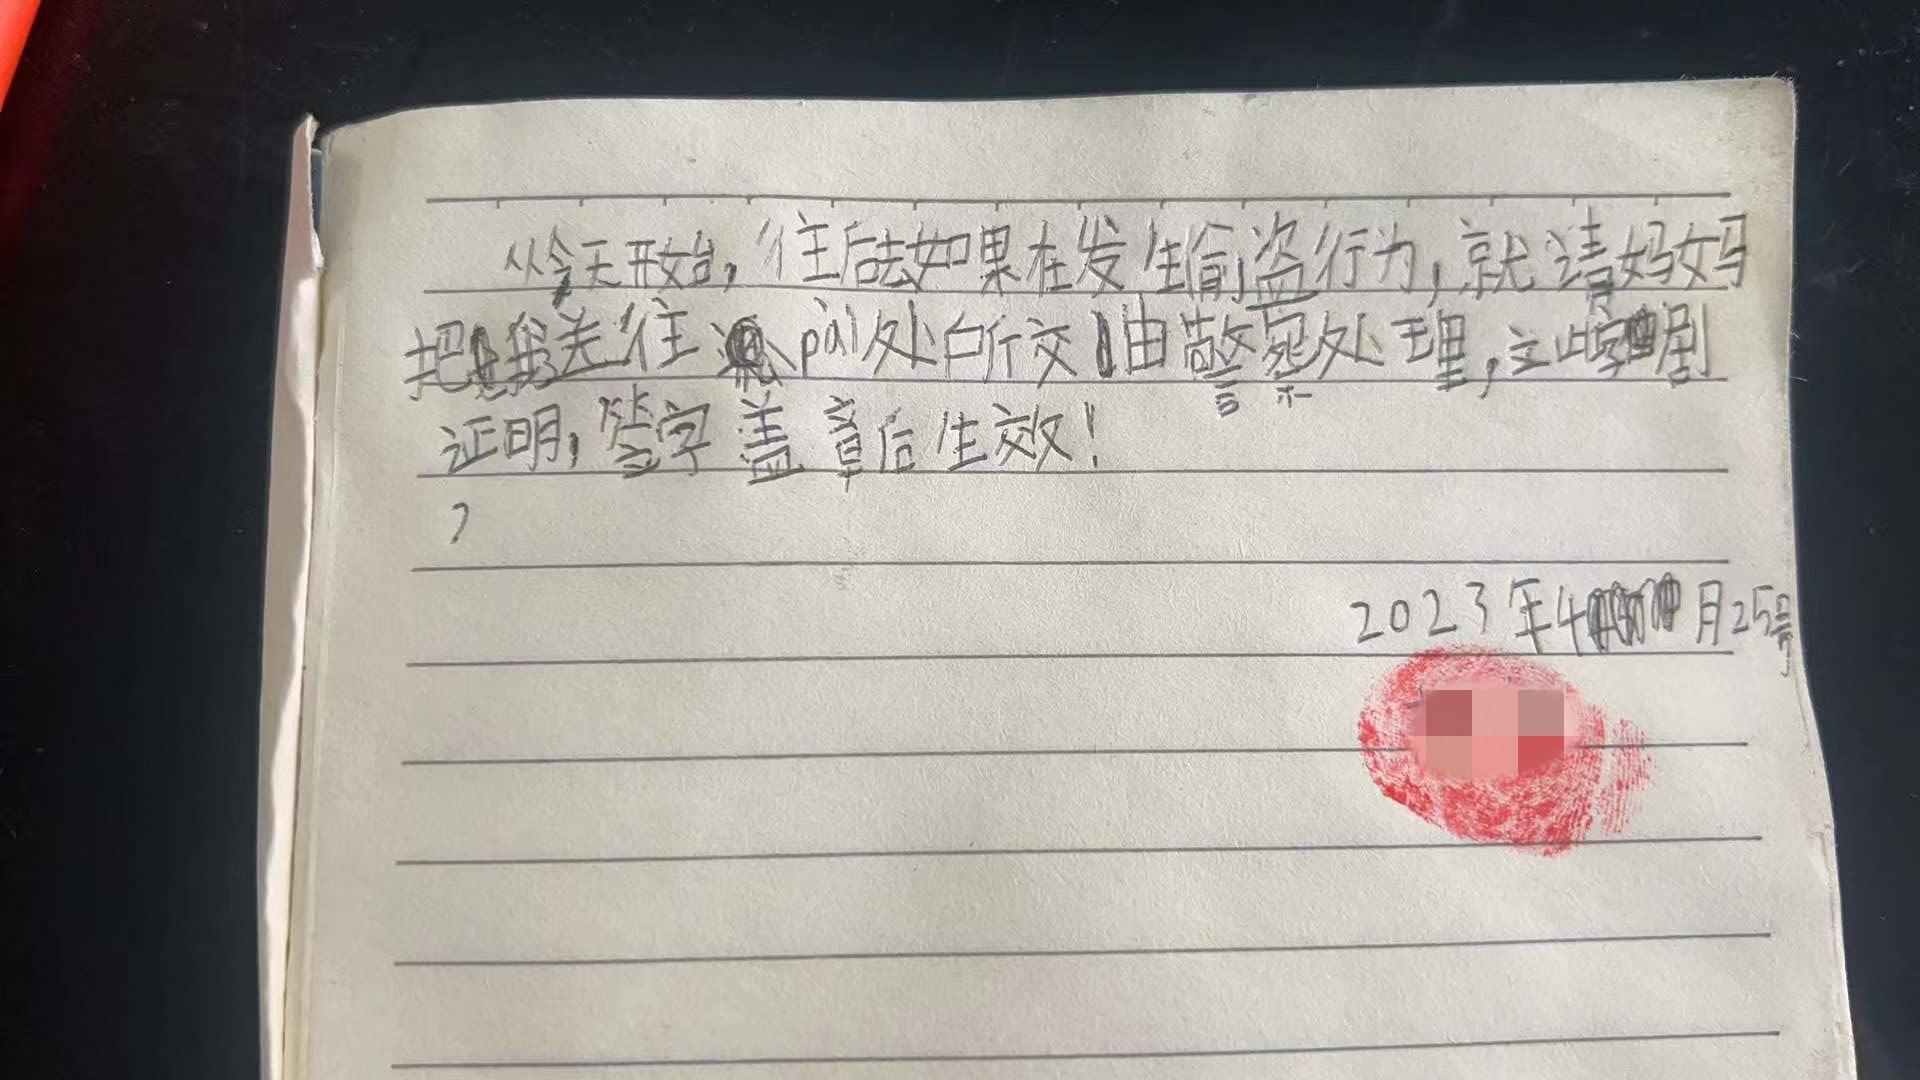 从今天开始，往后去如果在发生偷盗行为，就请妈妈
把我关往pài处所交由警察处理，立此字剧
证明，签字盖章后生效！
2023年4月25号